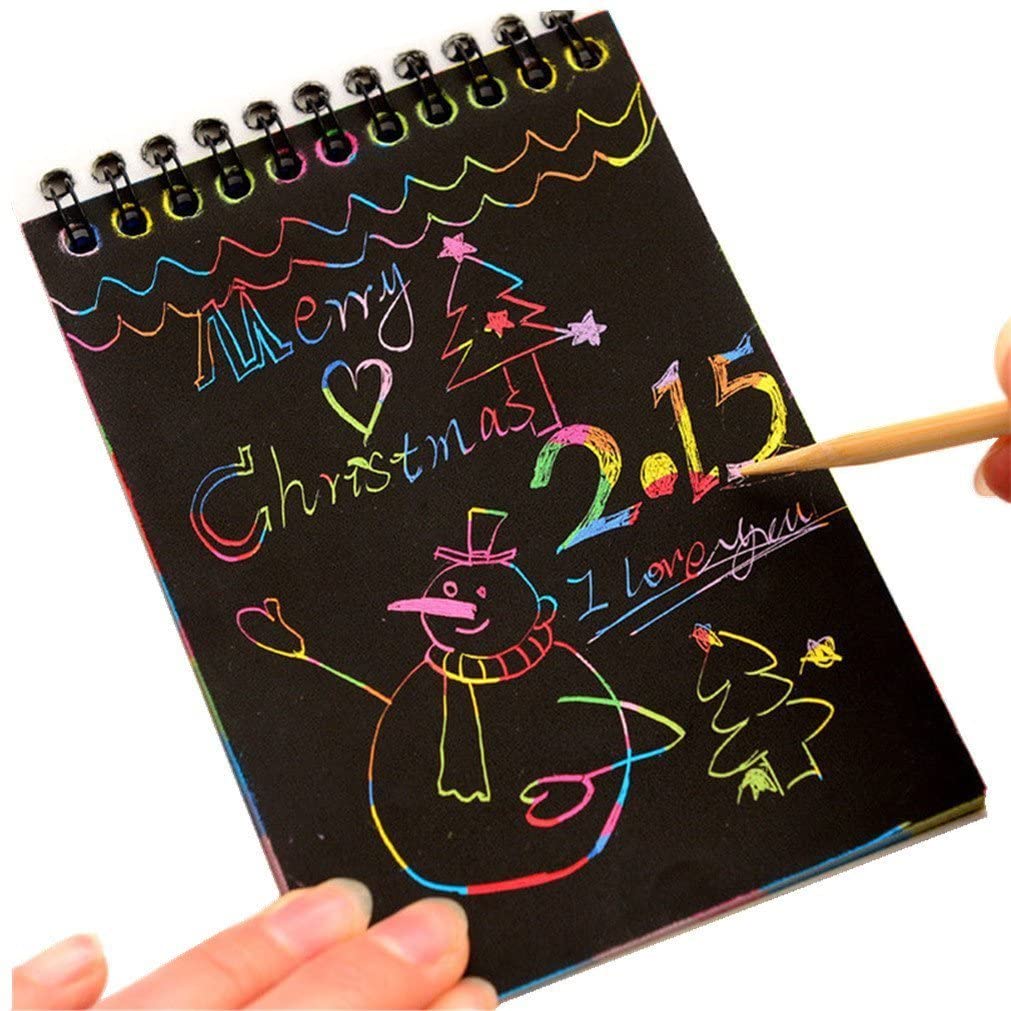 Merry
Christmas
2·15
I love you